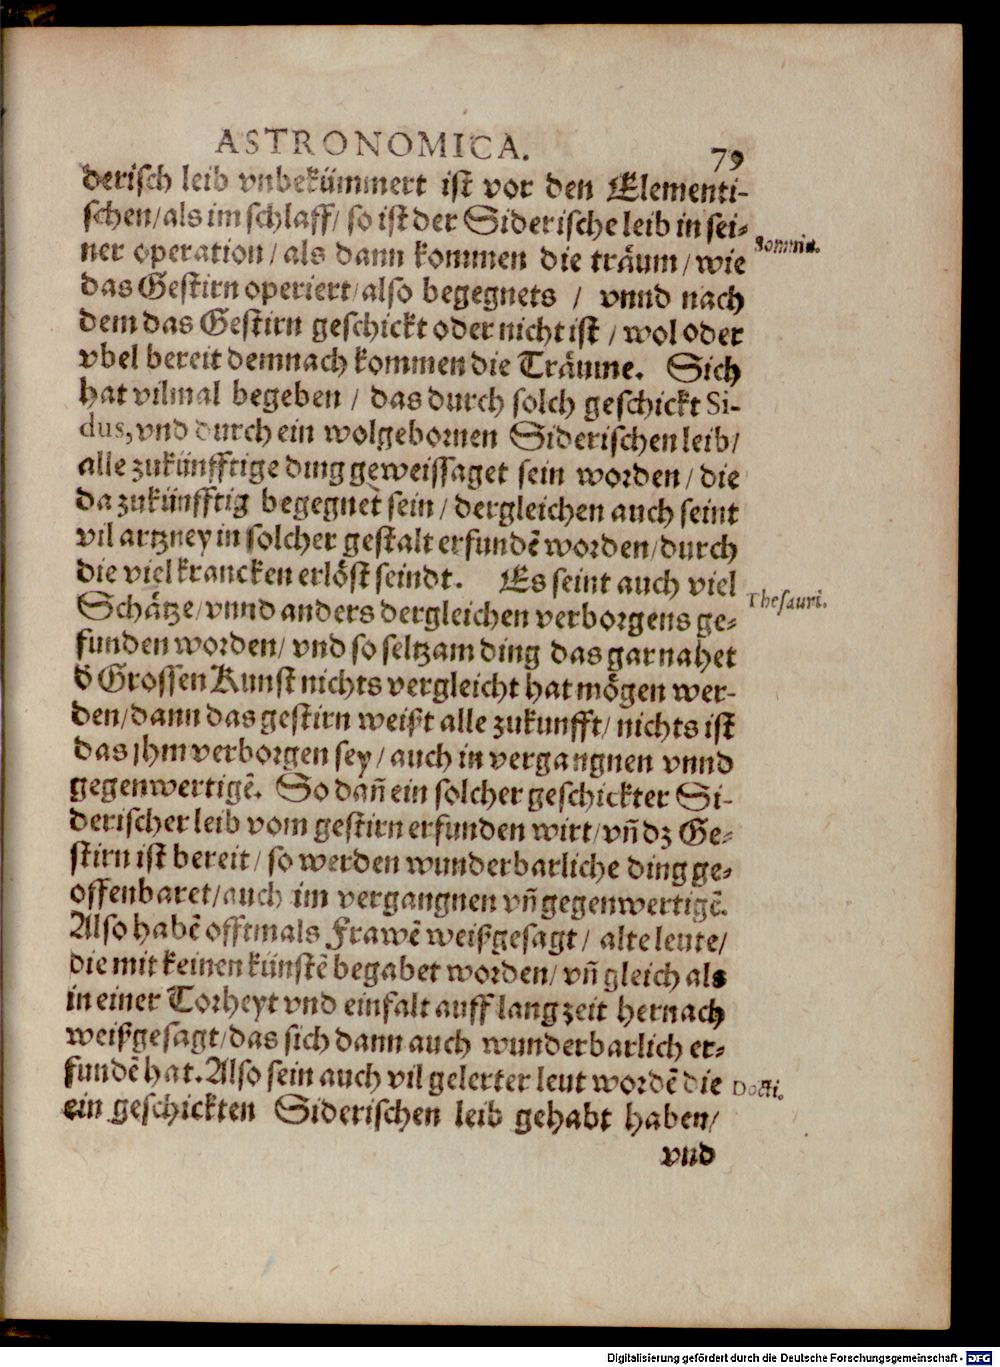 ASTRONOMICA. 79
derisch leib vnbekümmert ist vor den Elementi-
schen/als im schlaff/ so ist der Siderische leib in sei-
ner operation/als dann kommen die träum/wie
Somnia.
das Gestirn operiert/also begegnets / vnnd nach
dem das Gestirn geschickt oder nicht ist / wol oder
vbel bereit demnach kommen die Träume. Sich
hat vilmal begeben / das durch solch geschickt Si-
dus, vnd durch ein wolgebornen Siderischen leib/
alle zukünfftige ding geweissaget sein worden/die
da zukünfftig begegnet sein/dergleichen auch seint
vil artzney in solcher gestalt erfundē worden/durch
die viel krancken erlöst seindt. Es seint auch viel
Thesauri.
Schätze/vnnd anders dergleichen verborgens ge-
funden worden/ vnd so seltzam ding das gar nahet
d̕ Grossen Kunst nichts vergleicht hat mögen wer-
den/dann das gestirn weißt alle zukunfft/nichts ist
das jhm verborgen sey/auch in vergangnen vnnd
gegenwertigē. So dañ ein solcher geschickter Si-
derischer leib vom gestirn erfunden wirt/vñ dz Ge-
stirn ist bereit/so werden wunderbarliche ding ge-
offenbaret/auch im vergangnen vñ gegenwertigē.
Also habē offtmals Frawē weißgesagt/ alte leute/
die mit keinen künstē begabet worden/vñ gleich als
in einer Torheyt vnd einfalt auff lang zeit hernach
weißgesagt/das sich dann auch wunderbarlich er-
fundē hat. Also sein auch vil gelerter leut wordē die
Docti.
ein geschickten Siderischen leib gehabt haben/
vnd
Digitalisierung gefördert durch die Deutsche Forschungsgemeinschaft - DFG